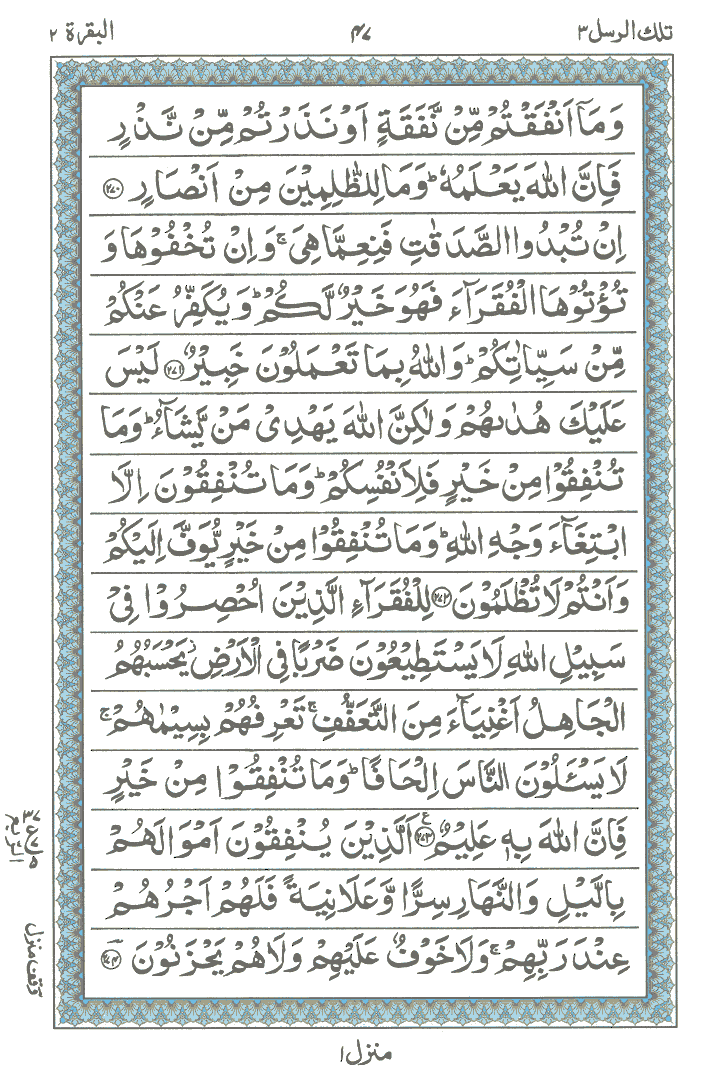 تلك الرسل ٣
٤٧
البقرة ٢
وَمَاۤ اَنْفَقْتُمْ مِّنْ نَّفَقَةٍ اَوْ نَذَرْتُمْ مِّنْ نَّذْرٍ
فَاِنَّ اللّٰهَ يَعْلَمُهٗ ؕ وَمَا لِلظّٰلِمِيْنَ مِنْ اَنْصَارٍ ﴿۲۷۰﴾
اِنْ تُبْدُوا الصَّدَقٰتِ فَنِعِمَّا هِىَ ۚ وَاِنْ تُخْفُوْهَا وَ
تُؤْتُوْهَا الْفُقَرَآءَ فَهُوَ خَيْرٌ لَّكُمْ ؕ وَيُكَفِّرُ عَنْكُمْ
مِّنْ سَيِّاٰتِكُمْ ؕ وَاللّٰهُ بِمَا تَعْمَلُوْنَ خَبِيْرٌ ﴿۲۷۱﴾ لَيْسَ
عَلَيْكَ هُدٰىهُمْ وَلٰكِنَّ اللّٰهَ يَهْدِىْ مَنْ يَّشَآءُ ؕ وَمَا
تُنْفِقُوْا مِنْ خَيْرٍ فَلِاَنْفُسِكُمْ ؕ وَمَا تُنْفِقُوْنَ اِلَّا
ابْتِغَآءَ وَجْهِ اللّٰهِ ؕ وَمَا تُنْفِقُوْا مِنْ خَيْرٍ يُّوَفَّ اِلَيْكُمْ
وَاَنْتُمْ لَا تُظْلَمُوْنَ ﴿۲۷۲﴾ لِلْفُقَرَآءِ الَّذِيْنَ اُحْصِرُوْا فِىْ
سَبِيْلِ اللّٰهِ لَا يَسْتَطِيْعُوْنَ ضَرْبًا فِى الْاَرْضِ ؗ يَحْسَبُهُمُ
الْجَاهِلُ اَغْنِيَآءَ مِنَ التَّعَفُّفِ ۚ تَعْرِفُهُمْ بِسِيْمٰهُمْ ۚ
لَا يَسْـَٔلُوْنَ النَّاسَ اِلْحَافًا ؕ وَمَا تُنْفِقُوْا مِنْ خَيْرٍ
فَاِنَّ اللّٰهَ بِهٖ عَلِيْمٌ ﴿۲۷۳﴾ ع اَلَّذِيْنَ يُنْفِقُوْنَ اَمْوَالَهُمْ
بِالَّيْلِ وَالنَّهَارِ سِرًّا وَّعَلَانِيَةً فَلَهُمْ اَجْرُهُمْ
عِنْدَ رَبِّهِمْ ۚ وَلَا خَوْفٌ عَلَيْهِمْ وَلَا هُمْ يَحْزَنُوْنَ ﴿۲۷۴﴾
وقف منزل
منزل ١